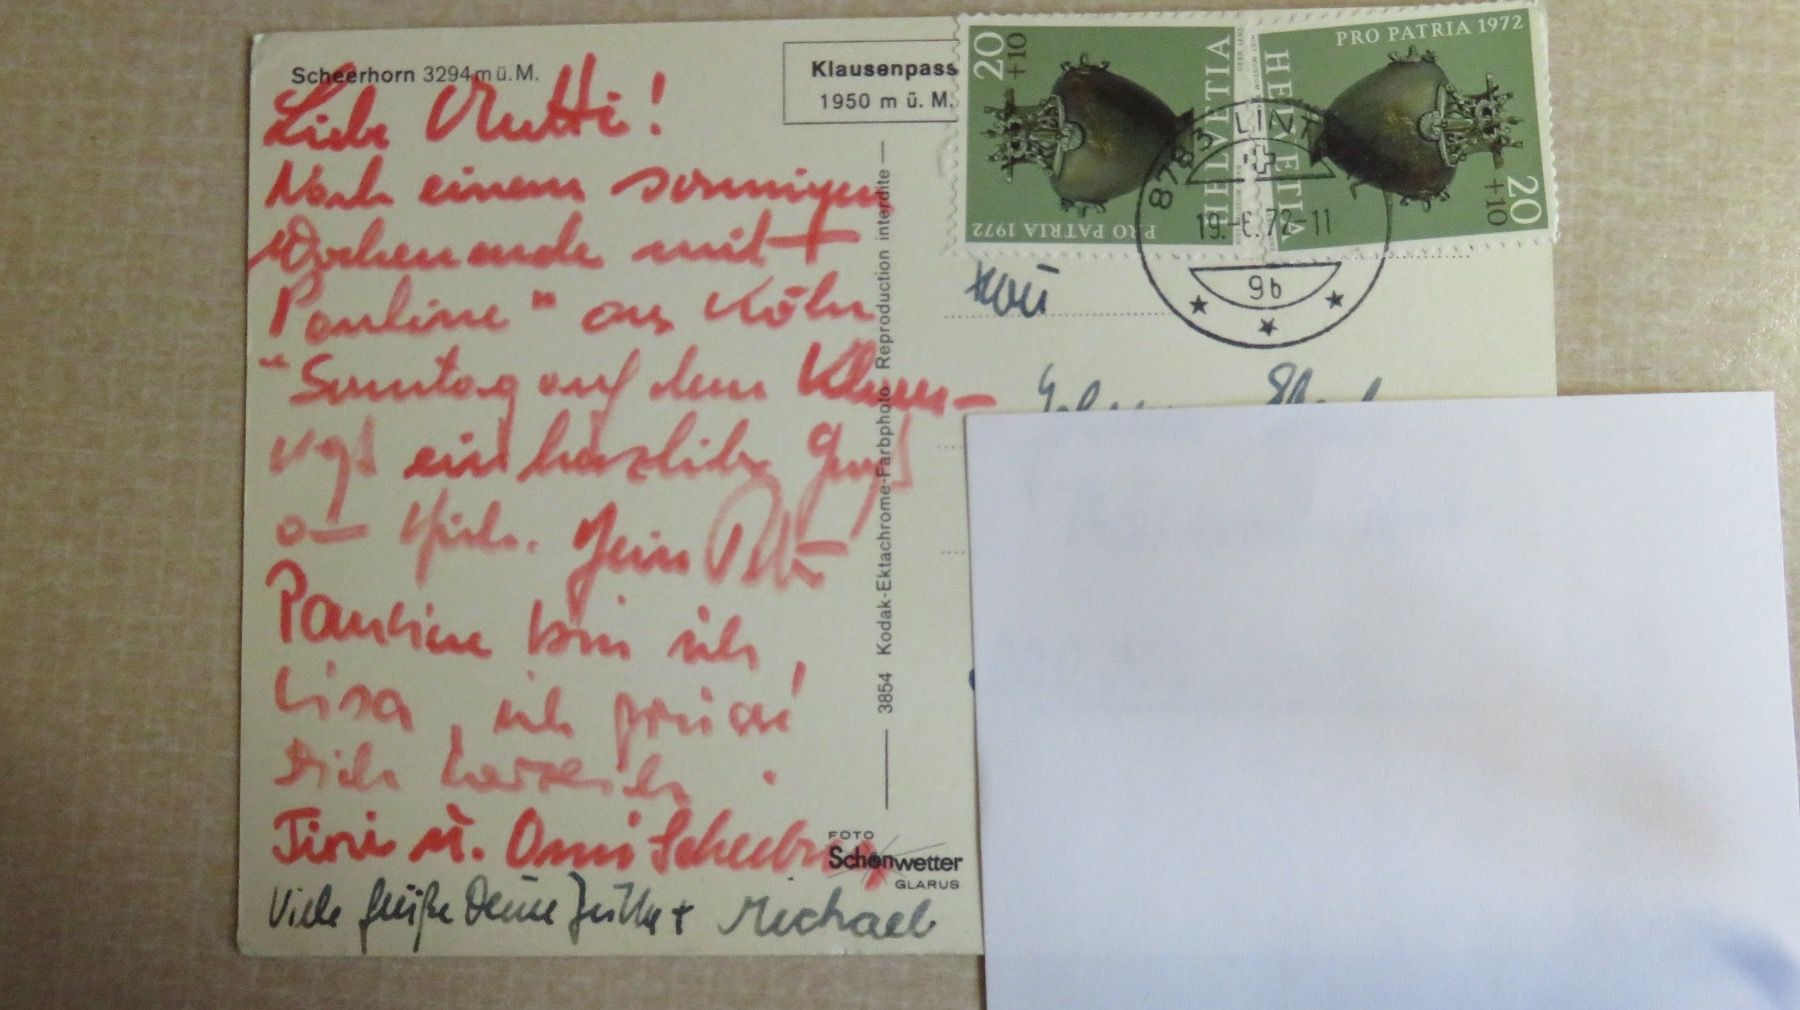 Scheerhorn 3294 m ü. M.
Klausenpass
1950 m ü. M.
Liebe Mutti!
Nach einem sonnigen
Wochenende mit
Pauline" aus Köln
"Sonntag auf dem Klausen-
ein herzlicher Gruß
an Dich. Dein Peter
Pauline bin ich,
Lisa, ich grüsse
Dich herzlich.
u. Omi
Viele Grüße Deine Jutta + Michael
3854 Kodak-Ektachrome-Farbphoto Reproduction interdite
FOTO
Schönwetter
GLARUS
20
+10
HELVETIA
PRO PATRIA 1972
PRO PATRIA 1972
HELVETIA
20
+10
8783 LINT
19.-6.72-11
9b